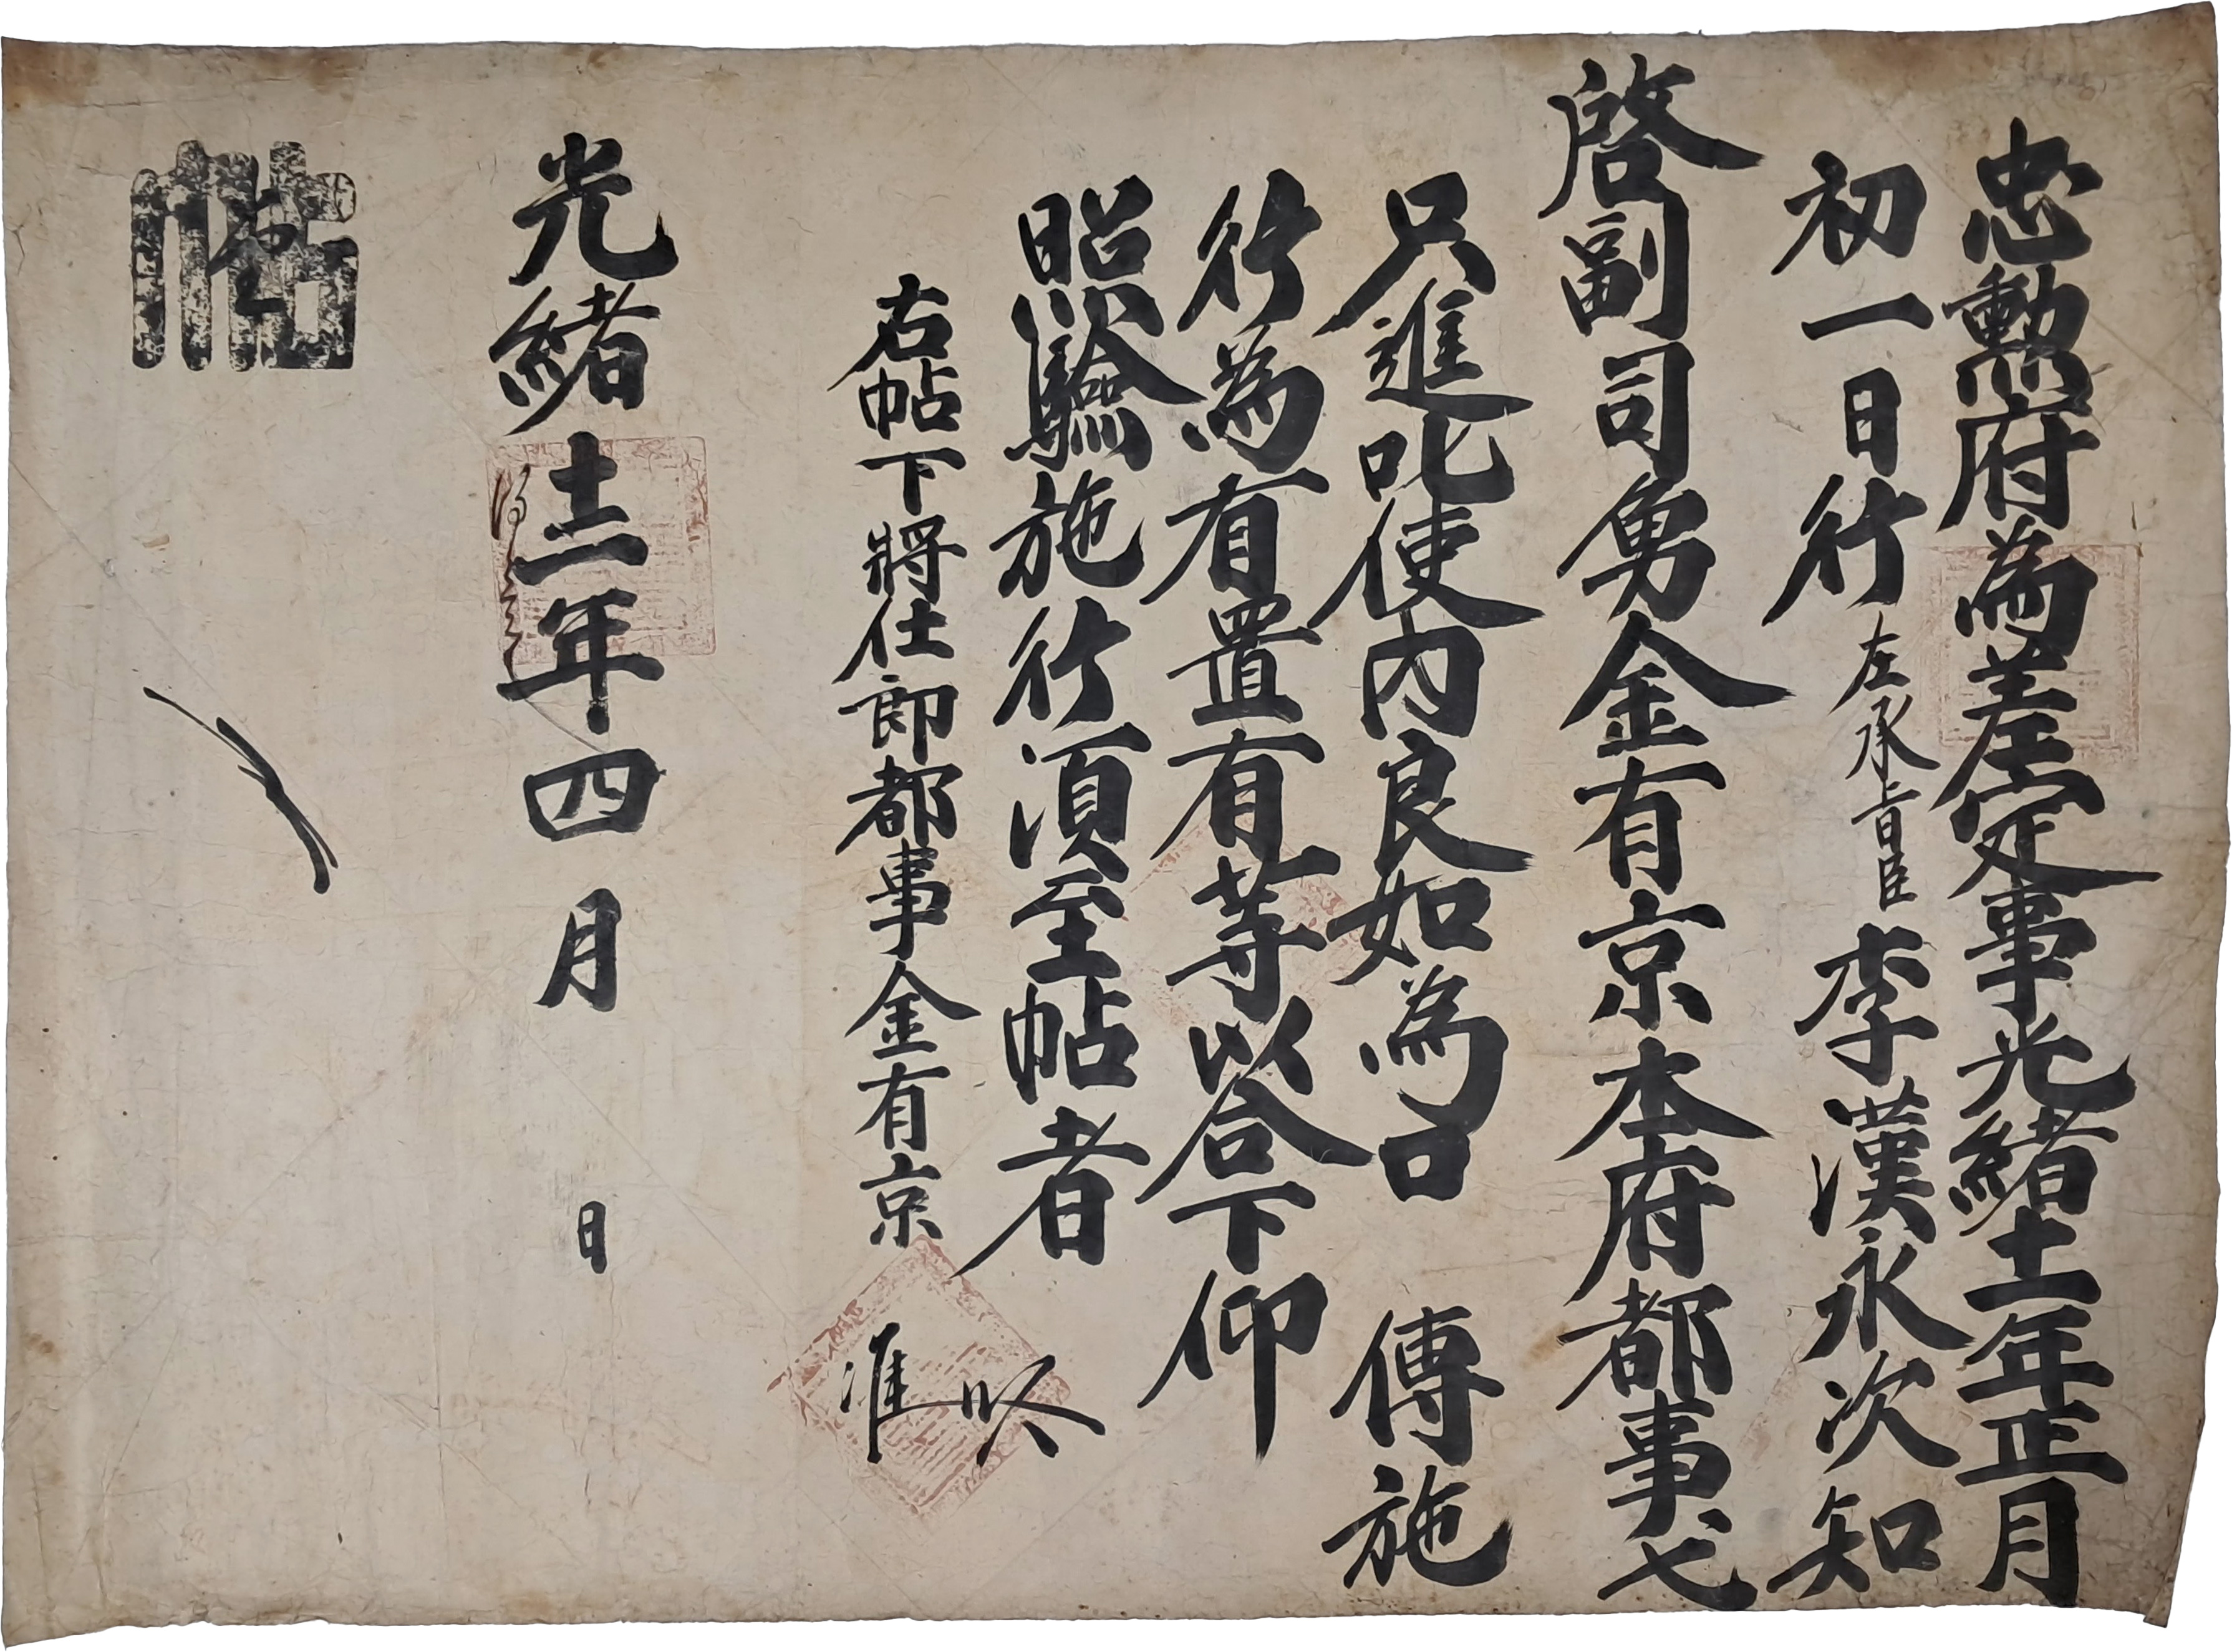 忠勳府為差定事光緒十一年正月
初一日行左承旨臣李漢永次知
啓副司勇金有京本府都事弋
只進叱使內良如為口 傳施
行為有置有等以合下仰
照驗施行須至帖者
右帖下將仕郎都事金有京 准此
光緒十二年四月 日
帖